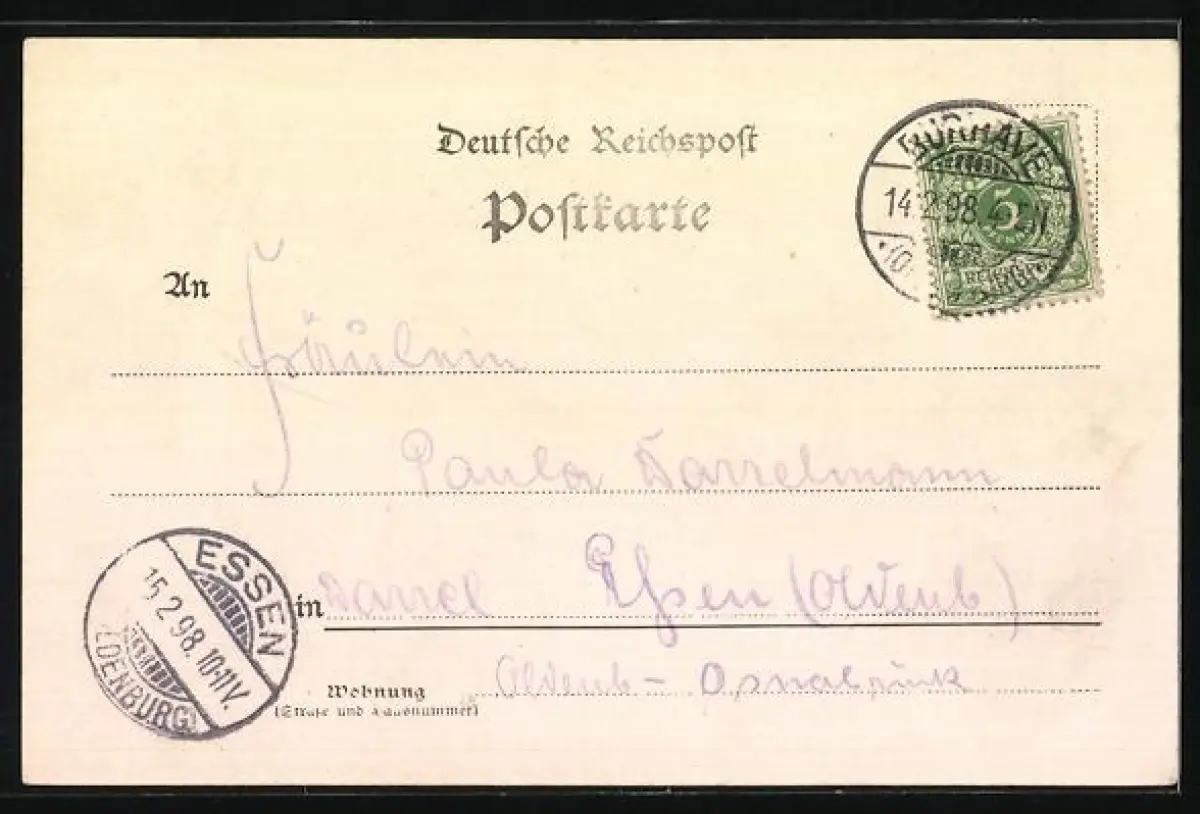 Deutsche Reichspost
Postkarte
BURHAVE
14.2.98.
5
REICHSPOST
An
Fräulein
Paula Darrelmann
in Darrel Essen (Oldenb)
Oldenb - Osnabrück
Wohnung
(Straße und Hausnummer)
ESSEN
15.2.98.10-11V.
LDENBURG